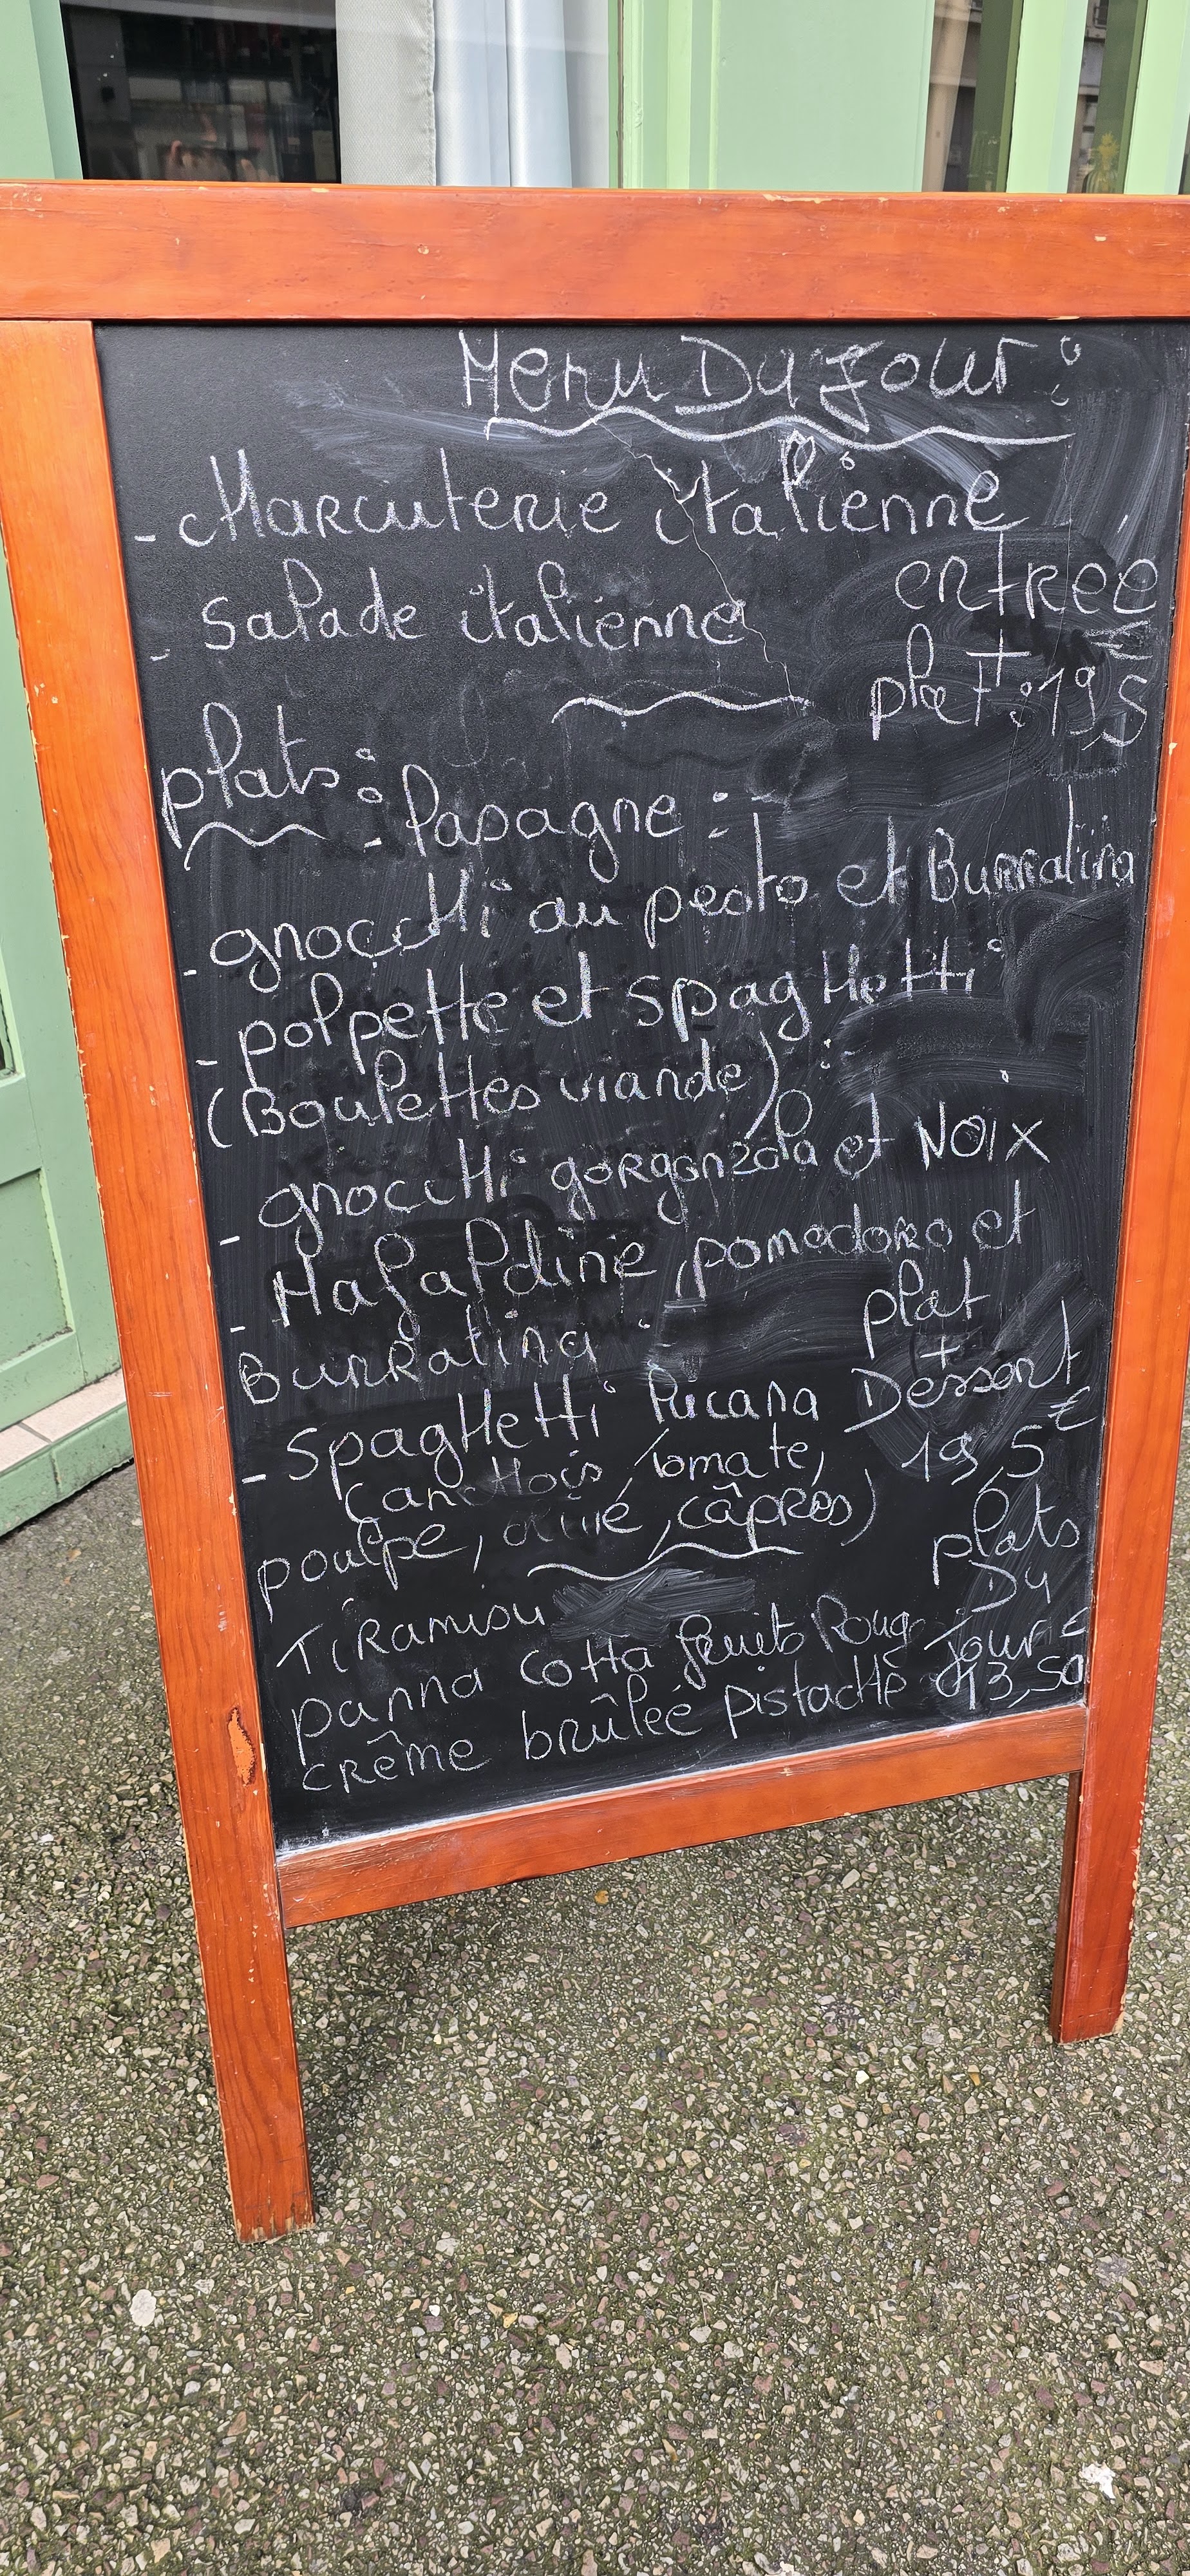 Menu Du Jour :
- charcuterie italienne
- salade italienne
entree
+ €
plat : 19,5
plats :
- lasagne :
- gnocchi au pesto et Burratina
- polpette et spaghetti
(Boulettes viande) :
- gnocchi gorgonzola et NOIX
- Mafaldine, pomodoro et
Burratina :
- spaghetti lucana
(anchois, tomate,
poulpe, olive, câpres)
plat
+
Dessert
19,5 €
Tiramisu
panna cotta fruits Rouge
crême brûlée pistache
plats
Du
Jour €
13,50